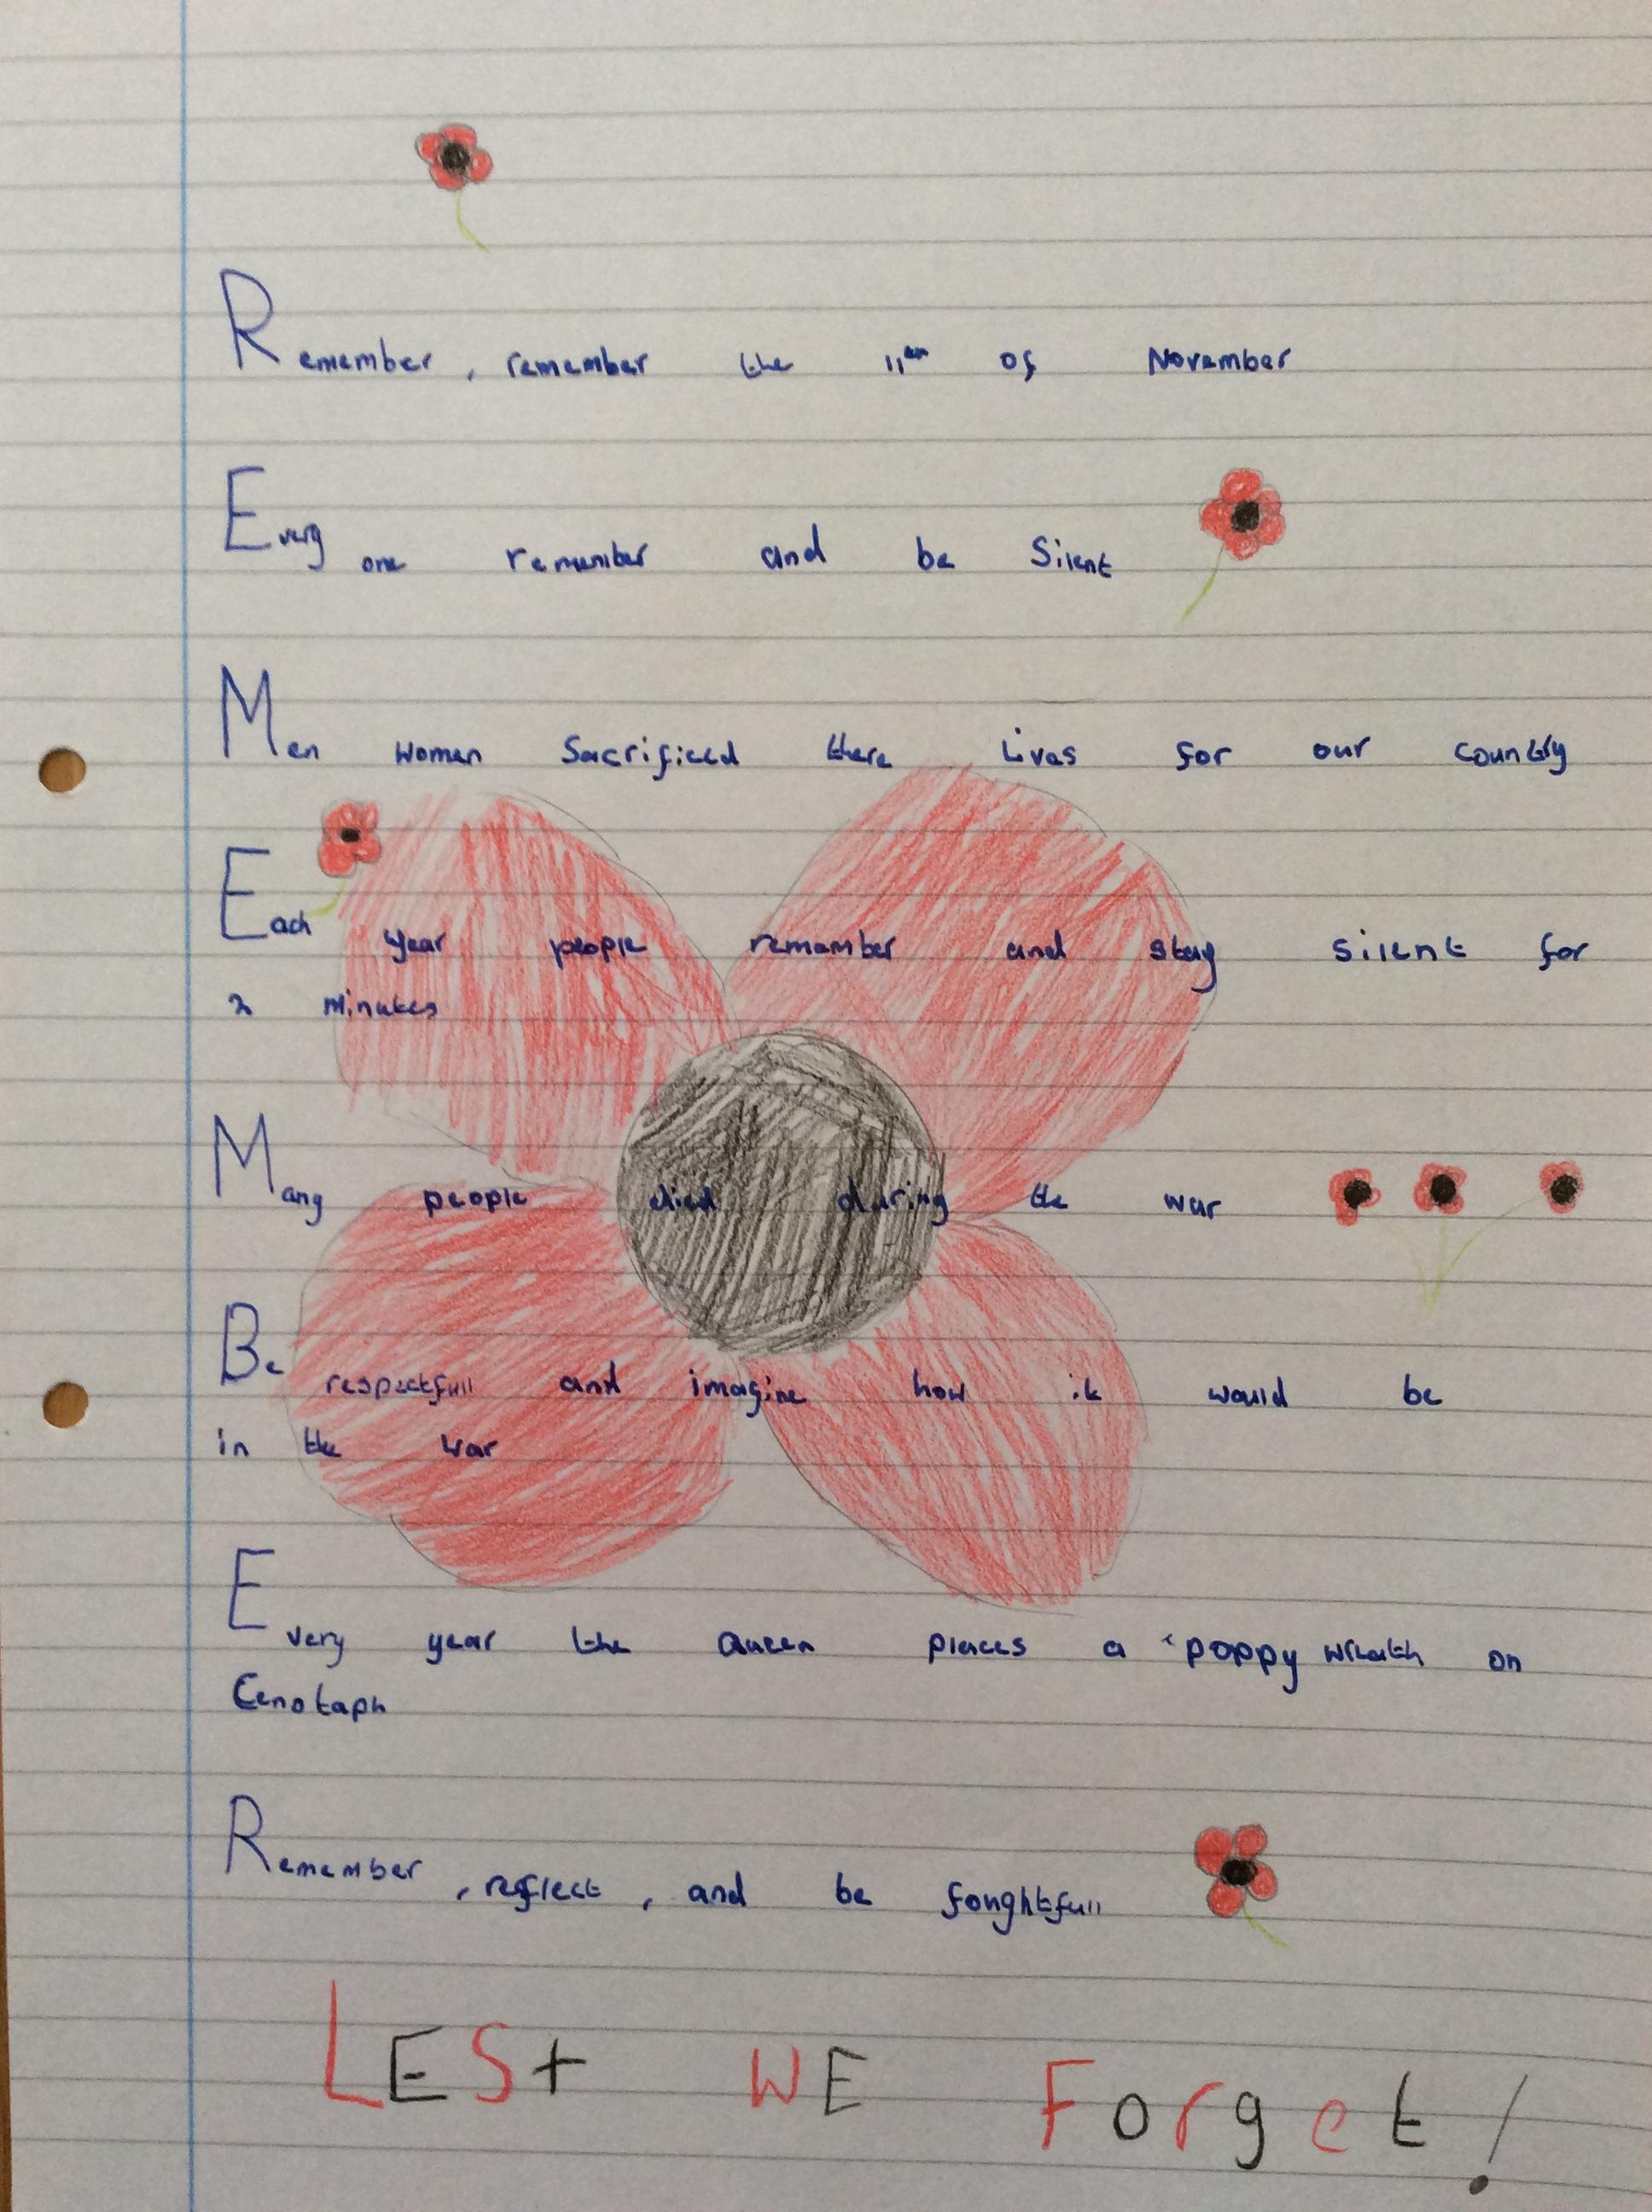 Remember, remember the 11th of November
Every one remember and be Silent
Men women Sacrificed there Lives for our country
Each year people remember and stay silent for
2 minutes
Many people died during the war
Be respectfull and imagine how it would be
in the war
Every year the Queen places a 'poppy wreath on
Cenotaph
Remember, reflect, and be foughtfull
LESt WE Forget!